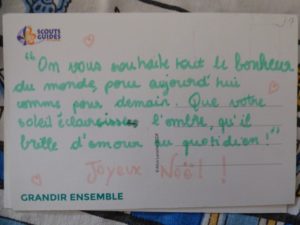 SCOUTS
GUIDES
"On vous souhaite tout le bonheur
du monde, pour aujourd'hui
comme pour demain. Que votre
soleil éclaircisse l'ombre, qu'il
brille d'amour au quotidien!"
Joyeux Noël!!
GRANDIR ENSEMBLE